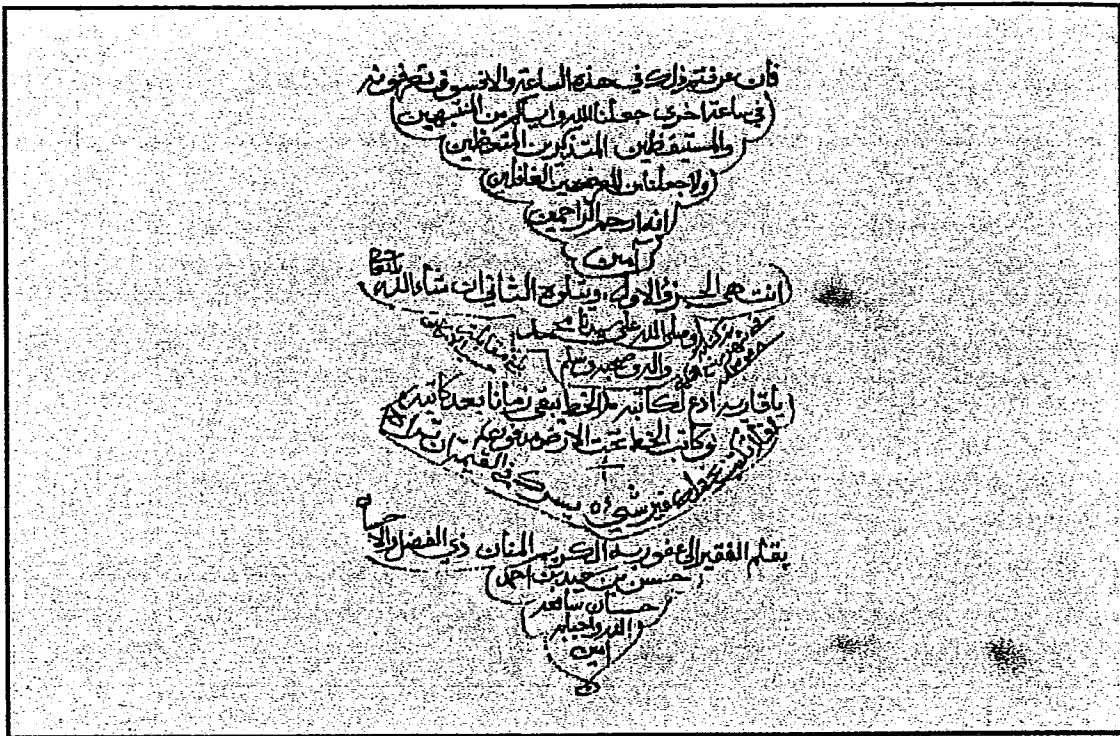 فان عرفتم ذلك في هذه الساعة والا فسوف تعرفونه
في ساعة اخرى جعلنا الله واياكم من المنتبهين
والمستيقظين المتذكرين المتعظين
ولا جعلنا من الغافلين
انه ارحم الراحمين
آمين
انتهى الجزؤ الاول ويتلوه الثاني ان شاء الله
وصلى الله على سيدنا محمد
واله وصحبه وسلم
يا قاريه ادع لكاتبه الخط يبقى زمانا بعد كاتبه
وكاتب الخط تحت الارض مدفون
فلا تكتب بخطك غير شيء يسرك في القيمة ان تراه
بقلم الفقير الى عفو ربه الكريم المنان ذي الفضل والاحسان
حسن بن عيد بن احمد
حسان سامحه
الله واحبابه
امين